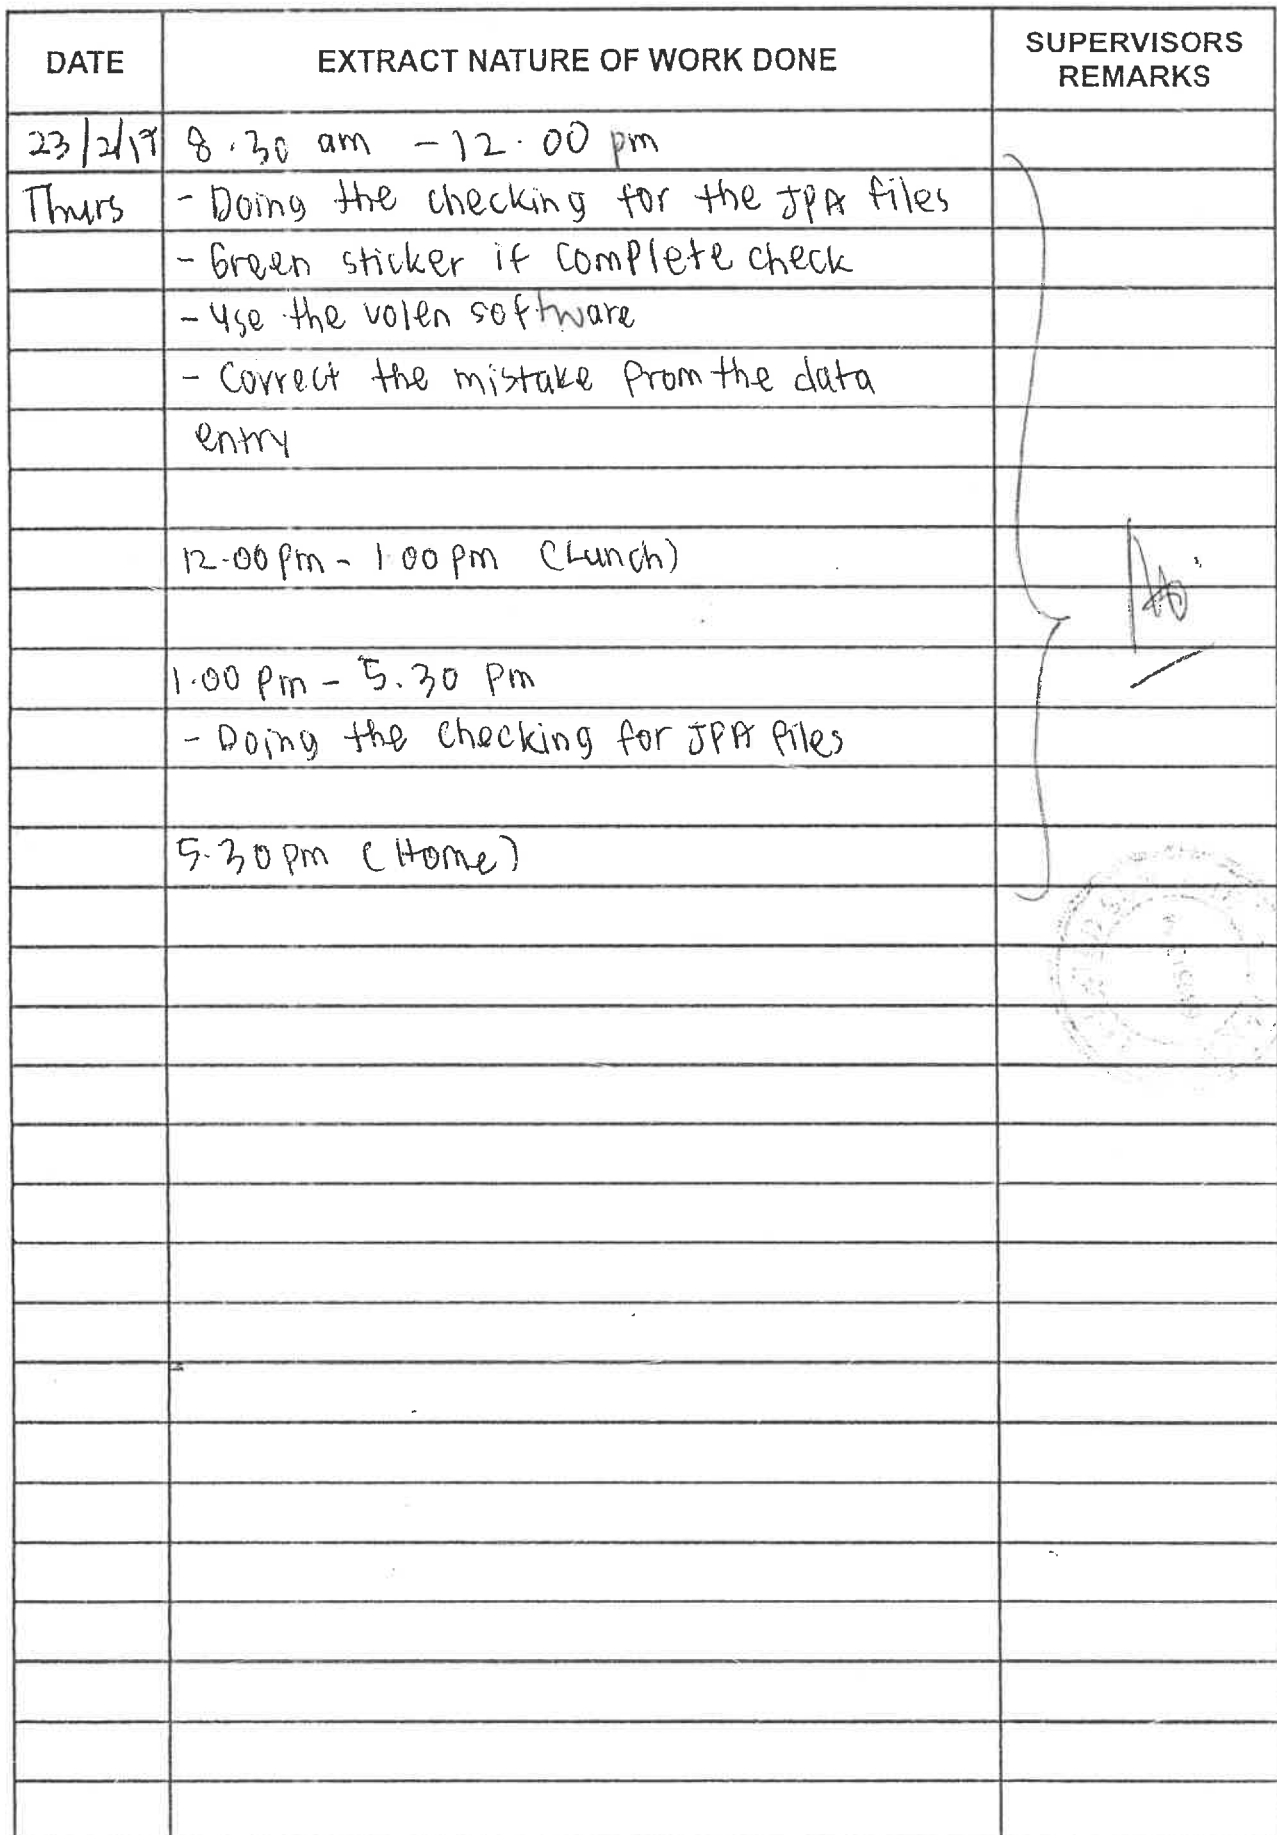 DATE EXTRACT NATURE OF WORK DONE SUPERVISORS REMARKS
23/2/17 8.30 am - 12.00 pm
Thurs - Doing the checking for the JPA files
- Green sticker if complete check
- Use the volen software
- Correct the mistake from the data
entry
12.00 pm - 1.00 pm (Lunch)
1.00 pm - 5.30 pm
- Doing the checking for JPA files
5.30 pm (Home)